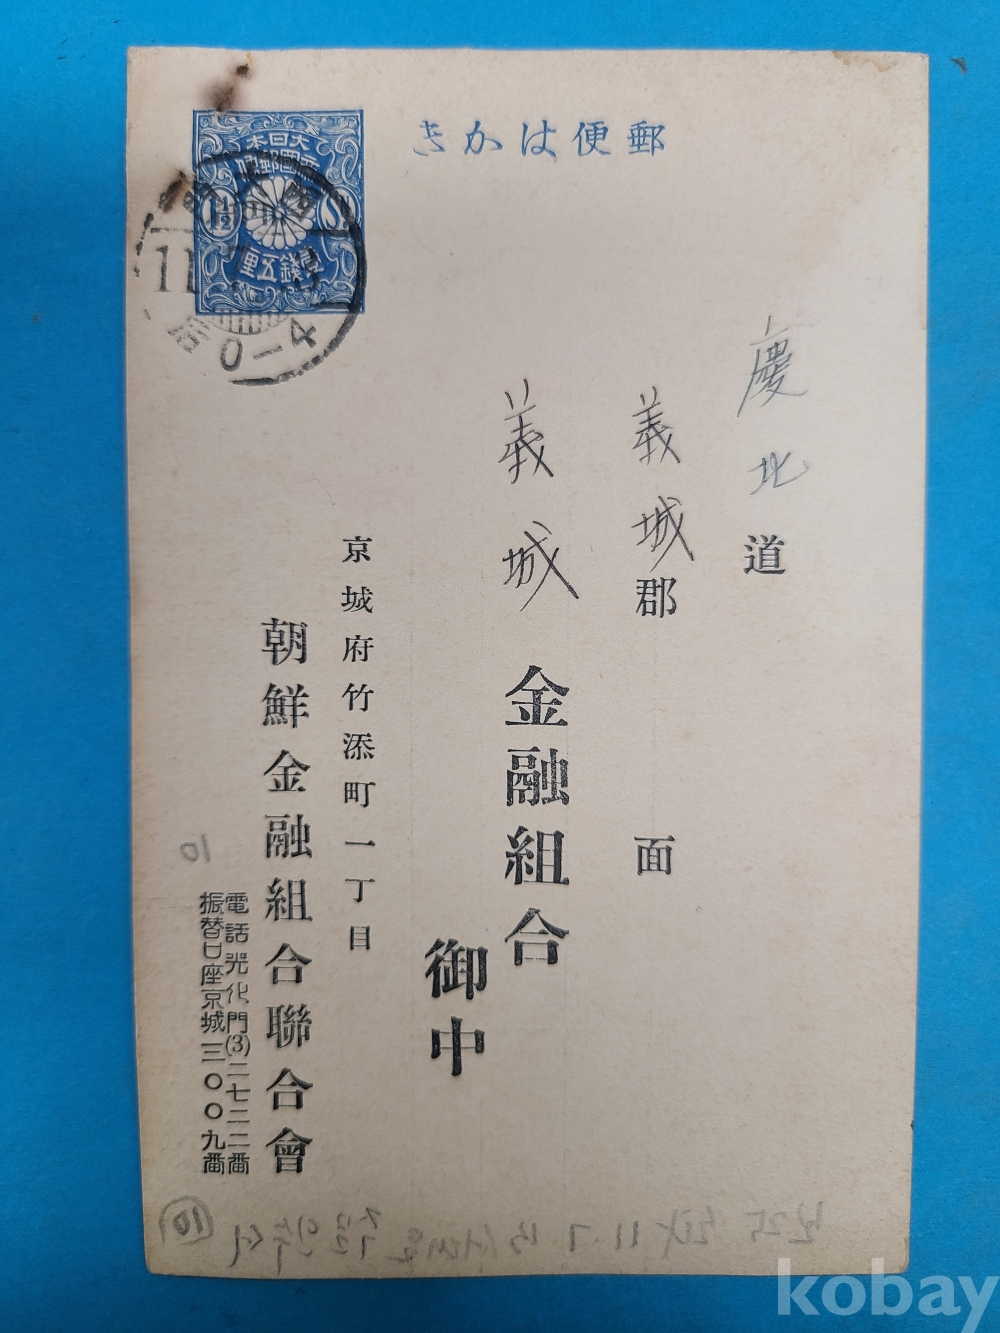 郵便はかき
大日本
帝國郵便
1½ Sn
壹錢五厘
11
0-4
慶北道
義城郡 面
義城 金融組合
御中
京城府竹添町一丁目
朝鮮金融組合聯合會
電話光化門(3)二七二二番
振替口座京城三〇〇九番
10
10
kobay